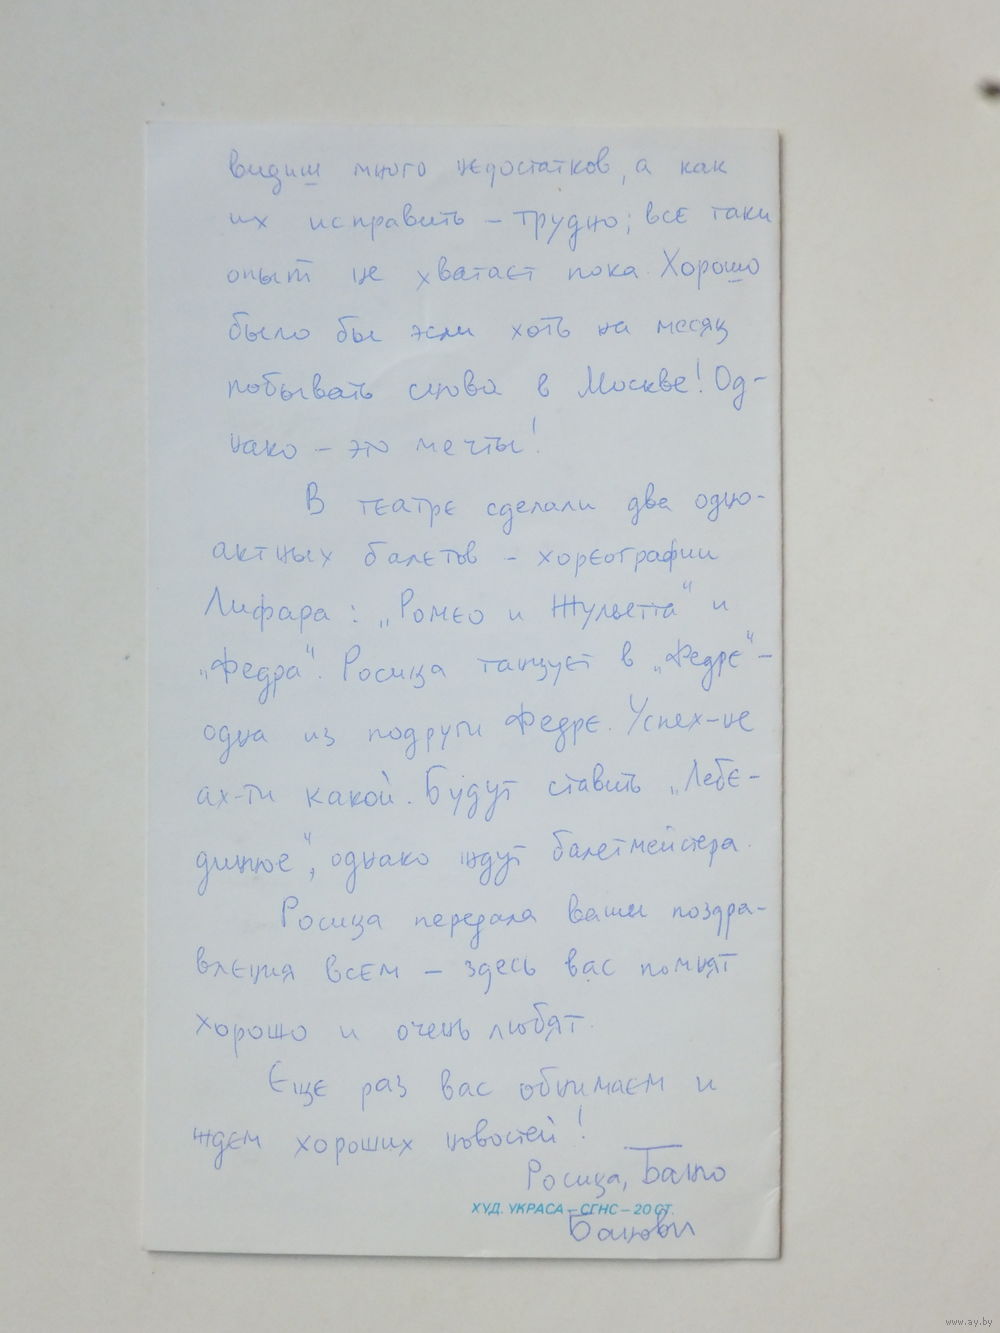 видиш много недостатков, а как
их исправить – трудно; все таки
опыт не хватает пока. Хорошо
было бы если хоть на месяц
побывать снова в Москве! Од-
нако – это мечты!
В театре сделали два одно-
актных балетов – хореографии
Лифара: „Ромео и Жульетта" и
„Федра". Росица танцует в „Федре" –
одна из подруги Федре. Успех – не
ах-ти какой. Будут ставить „Лебе-
диное", однако ждут балетмейстера.
Росица передала ваши поздра-
вления всем – здесь вас помнят
хорошо и очень любят.
Еще раз вас обнимаем и
ждем хороших новостей!
Росица, Банко
ХУД. УКРАСА – СГНС – 20 СТ.
Бановы
www.ay.by